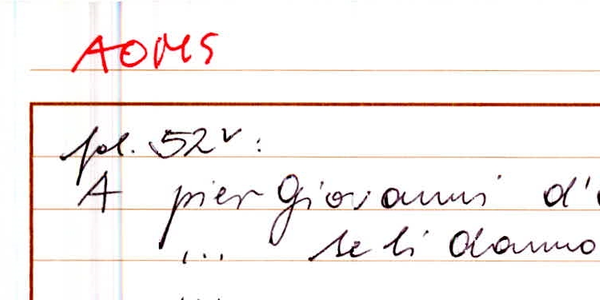 AOMS
fol. 52v:
A pier Giovanni d'
... se li danno
...